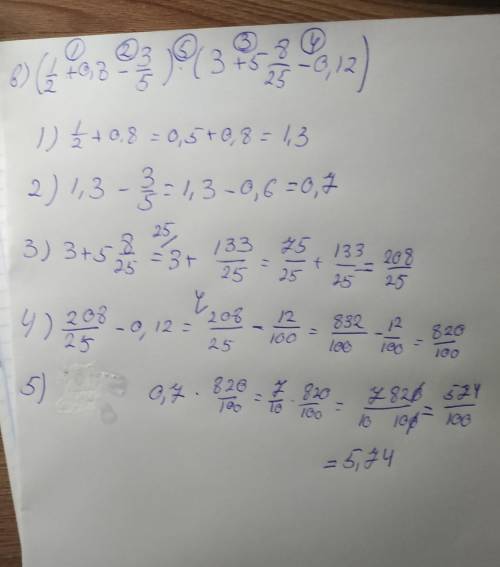 ① ② ⑤ ③ ④
в) (1/2 + 0,8 - 3/5) · (3 + 5 8/25 - 0,12)
1) 1/2 + 0,8 = 0,5 + 0,8 = 1,3
2) 1,3 - 3/5 = 1,3 - 0,6 = 0,7
3) 3 + 5 8/25 = 3 25/ + 133/25 = 75/25 + 133/25 = 208/25
4) 208/25 - 0,12 = 4/ 208/25 - 12/100 = 832/100 - 12/100 = 820/100
5) 0,7 · 820/100 = 7/10 · 820/100 = 7 820/10 100 = 574/100
= 5,74